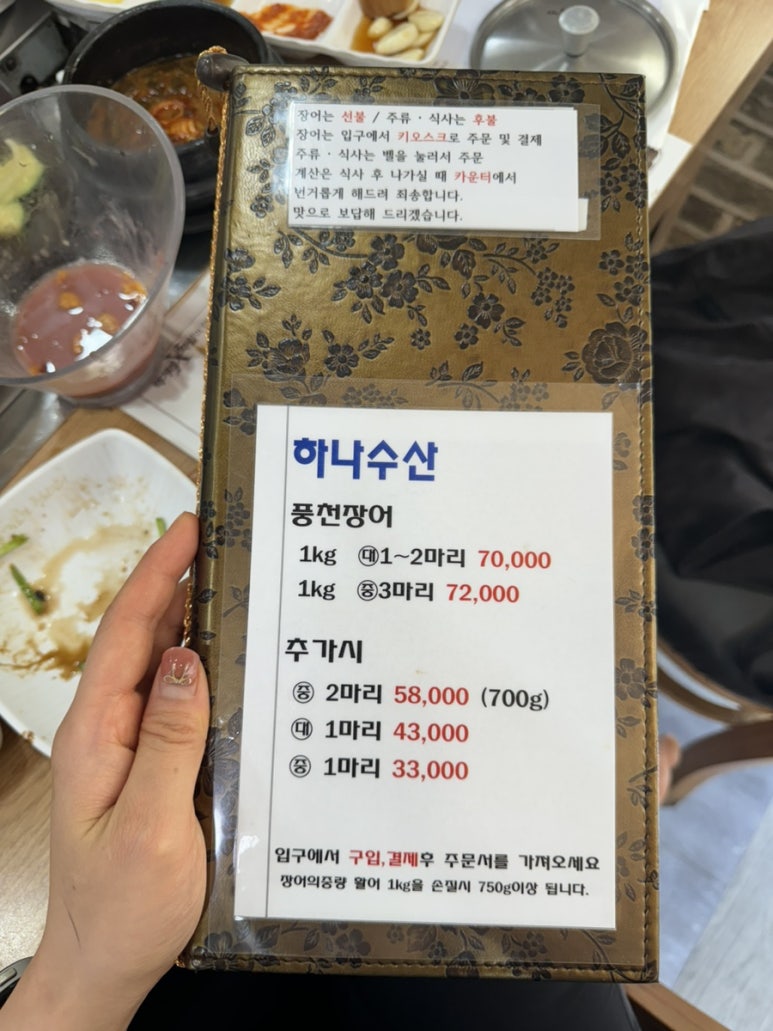 장어는 선불 / 주류 · 식사는 후불
장어는 입구에서 키오스크로 주문 및 결제
주류 · 식사는 벨을 눌러서 주문
계산은 식사 후 나가실 때 카운터에서
번거롭게 해드려 죄송합니다.
맛으로 보답해 드리겠습니다.
하나수산
풍천장어
1kg ㊅1~2마리 70,000
1kg ㊥3마리 72,000
추가시
㊥ 2마리 58,000 (700g)
㊅ 1마리 43,000
㊥ 1마리 33,000
입구에서 구입,결제후 주문서를 가져오세요
장어의중량 활어 1kg을 손질시 750g이상 됩니다.